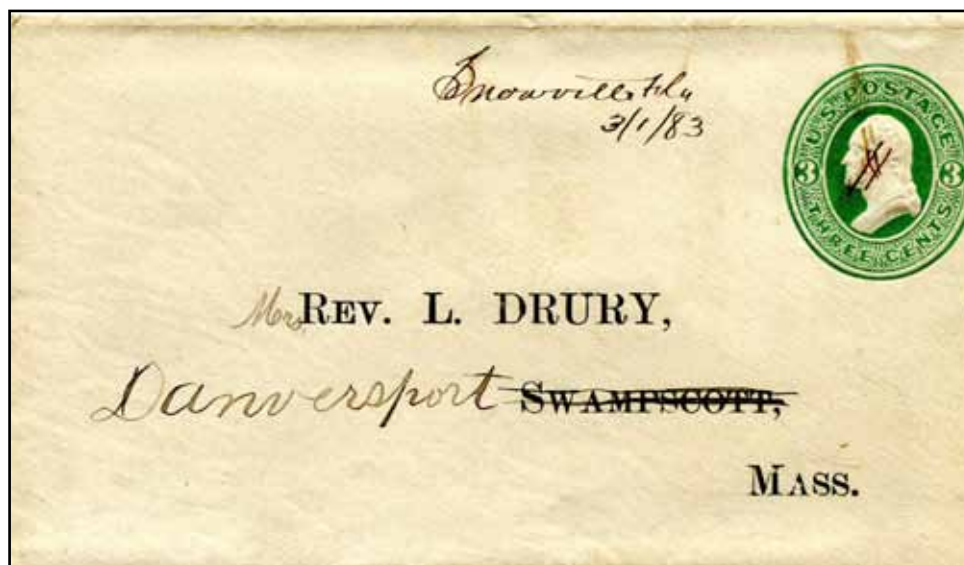 Snowville Fla
3/1/83
U.S. POSTAGE
3 3
THREE CENTS
Mrs. REV. L. DRURY,
Danversport SWAMPSCOTT,
MASS.